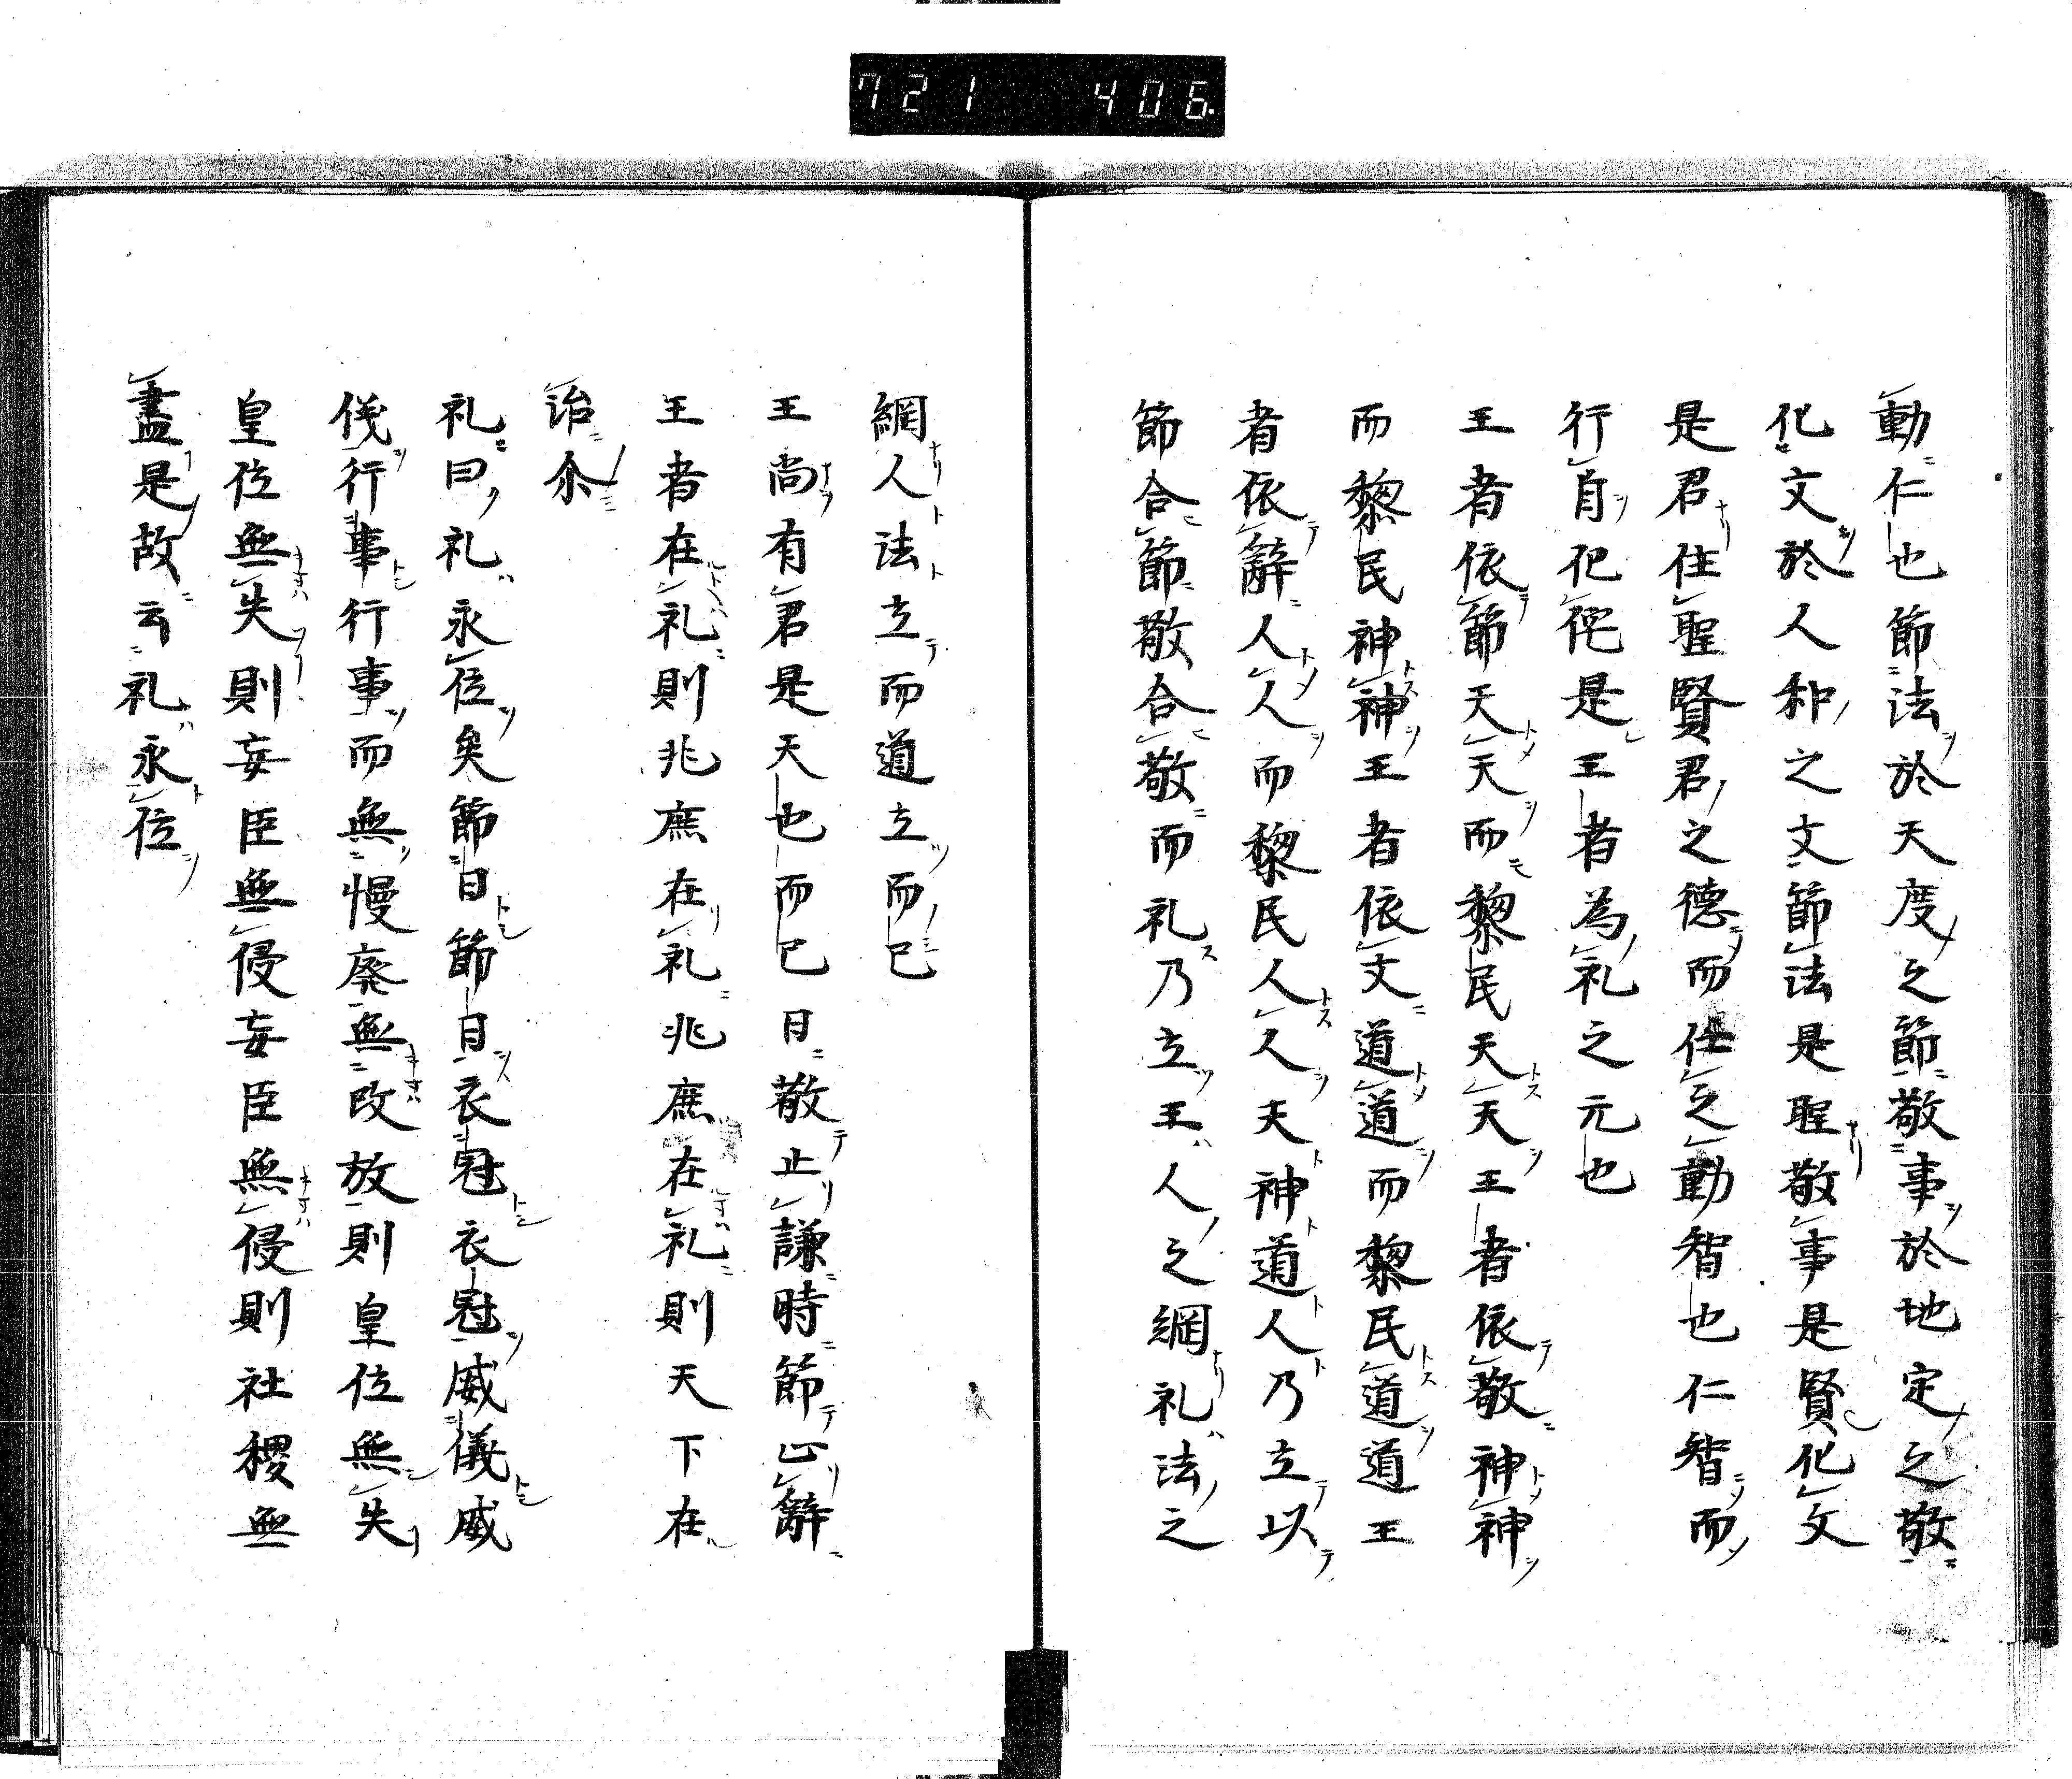 721 406
動仁也節法於天度之節敬事於地定之敬
化文於人和之文節法是聖敬事是賢化文
是君住聖賢君之德而仕之動智也仁智而
行自化侘是王者為礼之元也
王者依節天天而黎民天天王者依敬神神
而黎民神神王者依文道道而黎民道道王
者依辭人人而黎民人人天神道人乃立以
節合節敬合敬而礼乃立王人之綱礼法之
綱人法立而道立而已
王尚有君是天也而已日敬止謙時節止辭
王者在礼則兆庶在礼兆庶在礼則天下在
治尒
礼曰礼永位矣節日節日衣冠衣冠威儀威
儀行事行事而無慢廢無改放則皇位無失
皇位無失則妄臣無侵妄臣無侵則社稷無
盡是故云礼永位